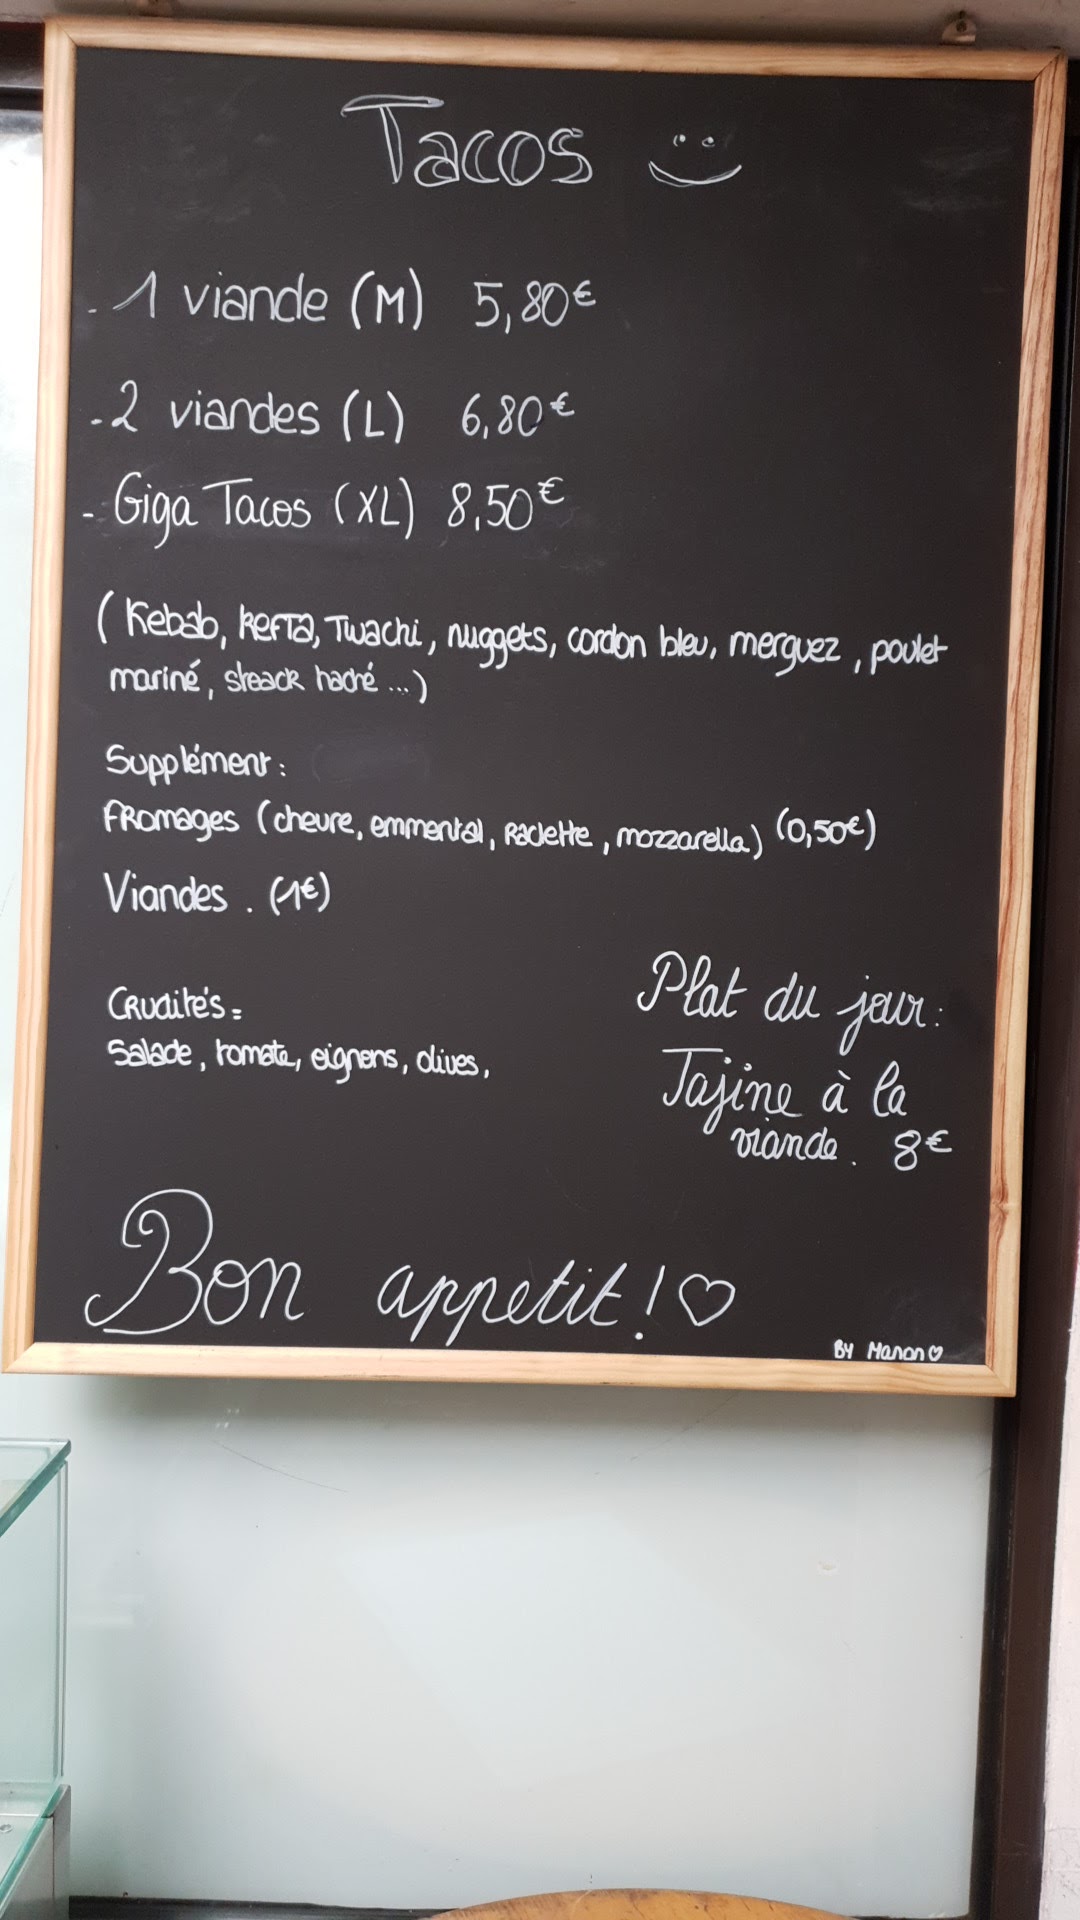 Tacos
- 1 viande (M) 5,80€
- 2 viandes (L) 6,80€
- Giga Tacos (XL) 8,50€
(Kebab, kefta, Twachi, nuggets, cordon bleu, merguez, poulet
mariné, steack haché ...)
Supplément :
Fromages (chevre, emmental, raclette, mozzarella) (0,50€)
Viandes . (1€)
Crudités =
Salade, tomate, oignons, olives,
Plat du jour :
Tajine à la
viande. 8€
Bon appetit ! ♡
By Manon ♡